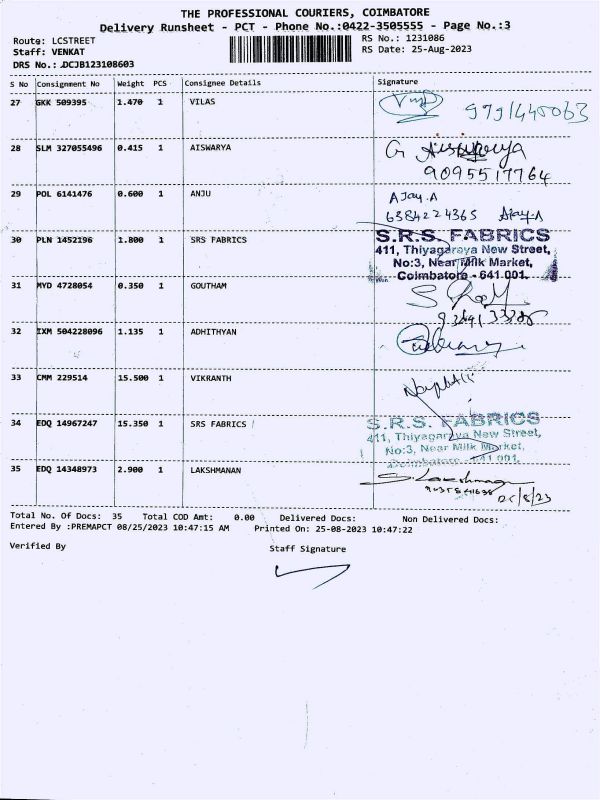 THE PROFESSIONAL COURIERS, COIMBATORE
Delivery Runsheet - PCT - Phone No.:0422-3505555 - Page No.:3
Route: LCSTREET
RS No.: 1231086
Staff: VENKAT
RS Date: 25-Aug-2023
DRS No.: DCJB123108603
S No Consignment No Weight PCS Consignee Details Signature
27 GKK 509395 1.470 1 VILAS 9791440063
28 SLM 327055496 0.415 1 AISWARYA G Aiswarya
9095517764
29 POL 6141476 0.600 1 ANJU AJay.A
6384224365 Ajay.A
30 PLN 1452196 1.800 1 SRS FABRICS S.R.S. FABRICS
411, Thiyagaraya New Street,
No:3, Near Milk Market,
Coimbatore - 641 001.
31 MYD 4728054 0.350 1 GOUTHAM
32 IXM 504228096 1.135 1 ADHITHYAN
33 CMM 229514 15.500 1 VIKRANTH
34 EDQ 14967247 15.350 1 SRS FABRICS S.R.S. FABRICS
411, Thiyagaraya New Street,
No:3, Near Milk Market,
Coimbatore - 641 001.
35 EDQ 14348973 2.900 1 LAKSHMANAN S. Lakshmanan
25/8/23
Total No. Of Docs: 35 Total COD Amt: 0.00 Delivered Docs: Non Delivered Docs:
Entered By :PREMAPCT 08/25/2023 10:47:15 AM Printed On: 25-08-2023 10:47:22
Verified By
Staff Signature